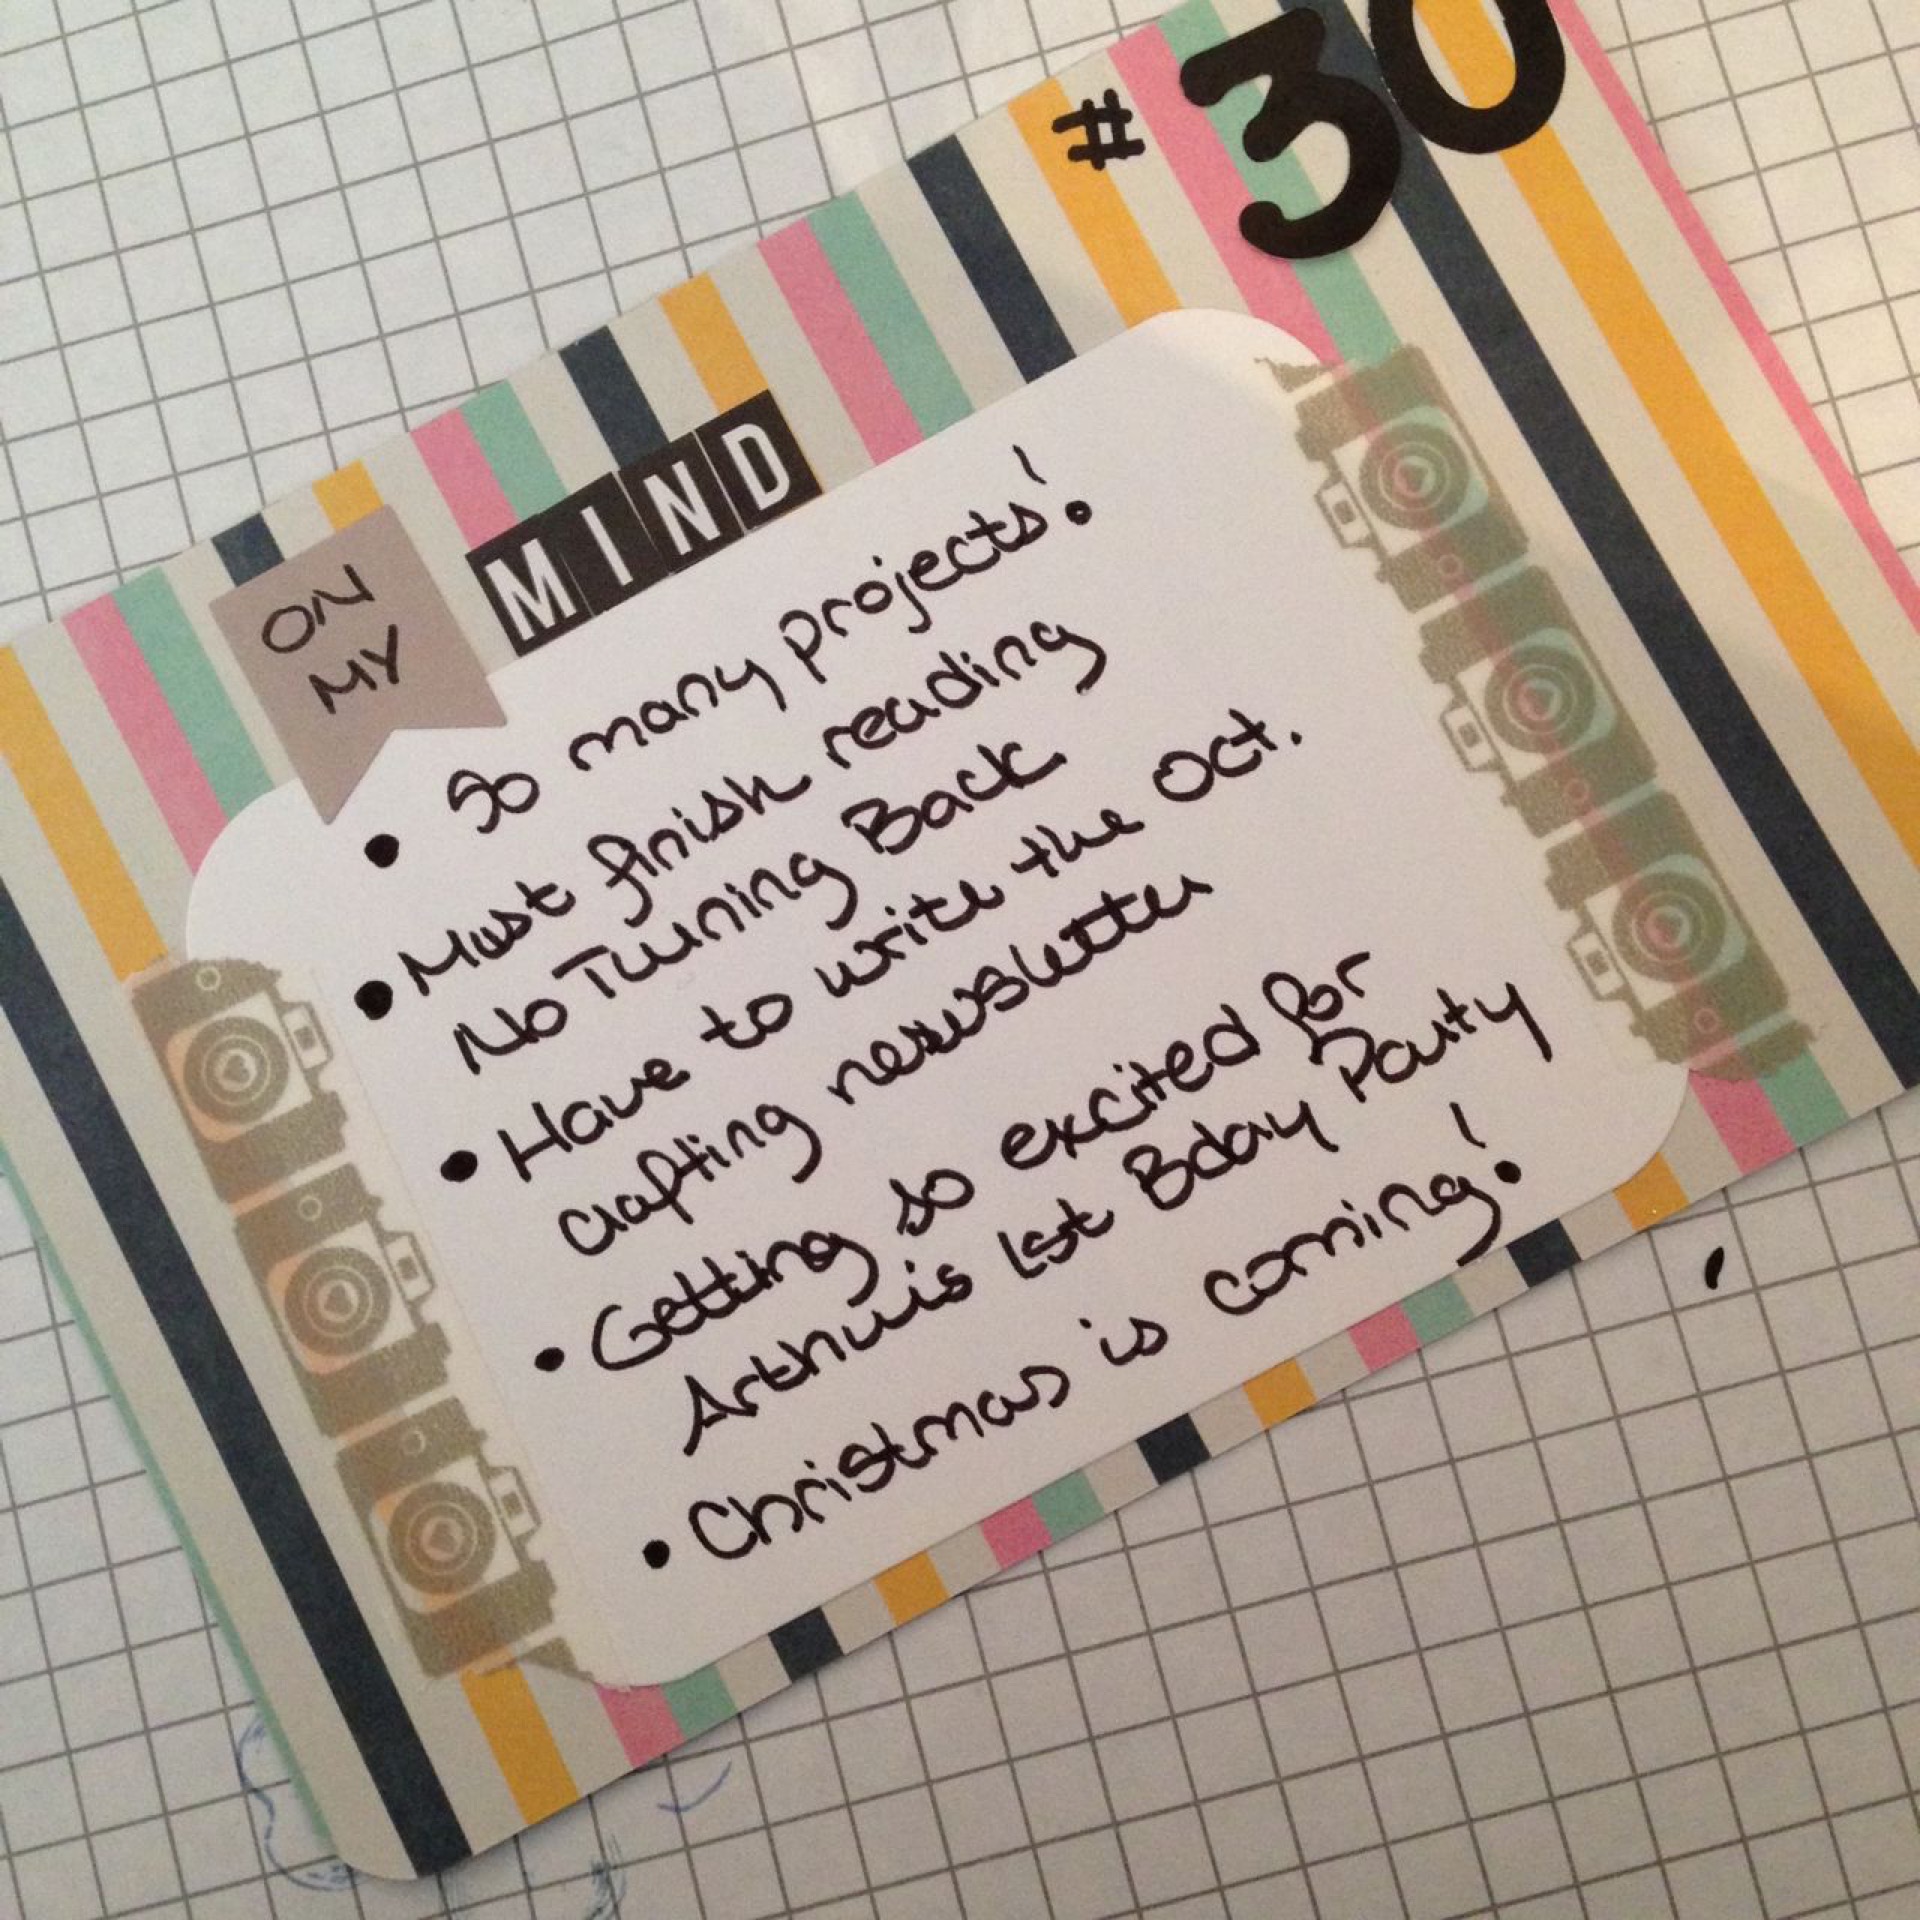 #30
ON
MY
MIND
• So many projects!
• Must finish reading
No Turning Back
• Have to write the Oct.
crafting newsletter
• Getting so excited for
Arthur's 1st Bday Party
• Christmas is coming!